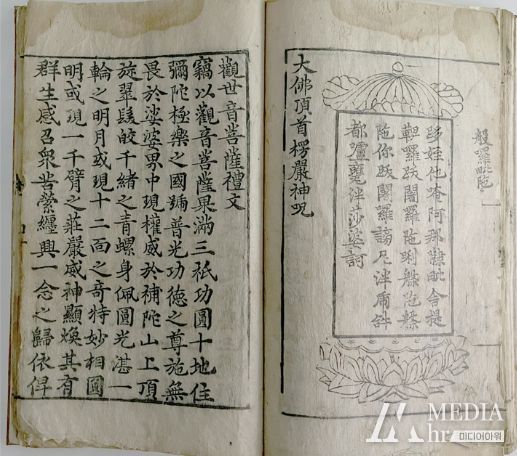 跢姪他唵阿那隷毗舍提
鞞囉跋闍囉陁唎槃陁槃
陁你跋闍囉謗尼泮虎
都嚧甕泮莎婆訶
大佛頂首楞嚴神呪
觀世音菩薩禮文
竊以觀音菩薩果滿三祇功圓十地住
彌陀極樂之國號普光功德之尊施無
畏於娑婆界中現權威於補陀山上頂
旋翠髻皎千緖之靑螺身佩圓光湛一
輪之明月或現十二面之奇特妙相圓
明或現一千臂之莊嚴威神顯煥其有
群生感召衆苦縈纏興一念之歸依俾
MEDIA
hr 미디어아워